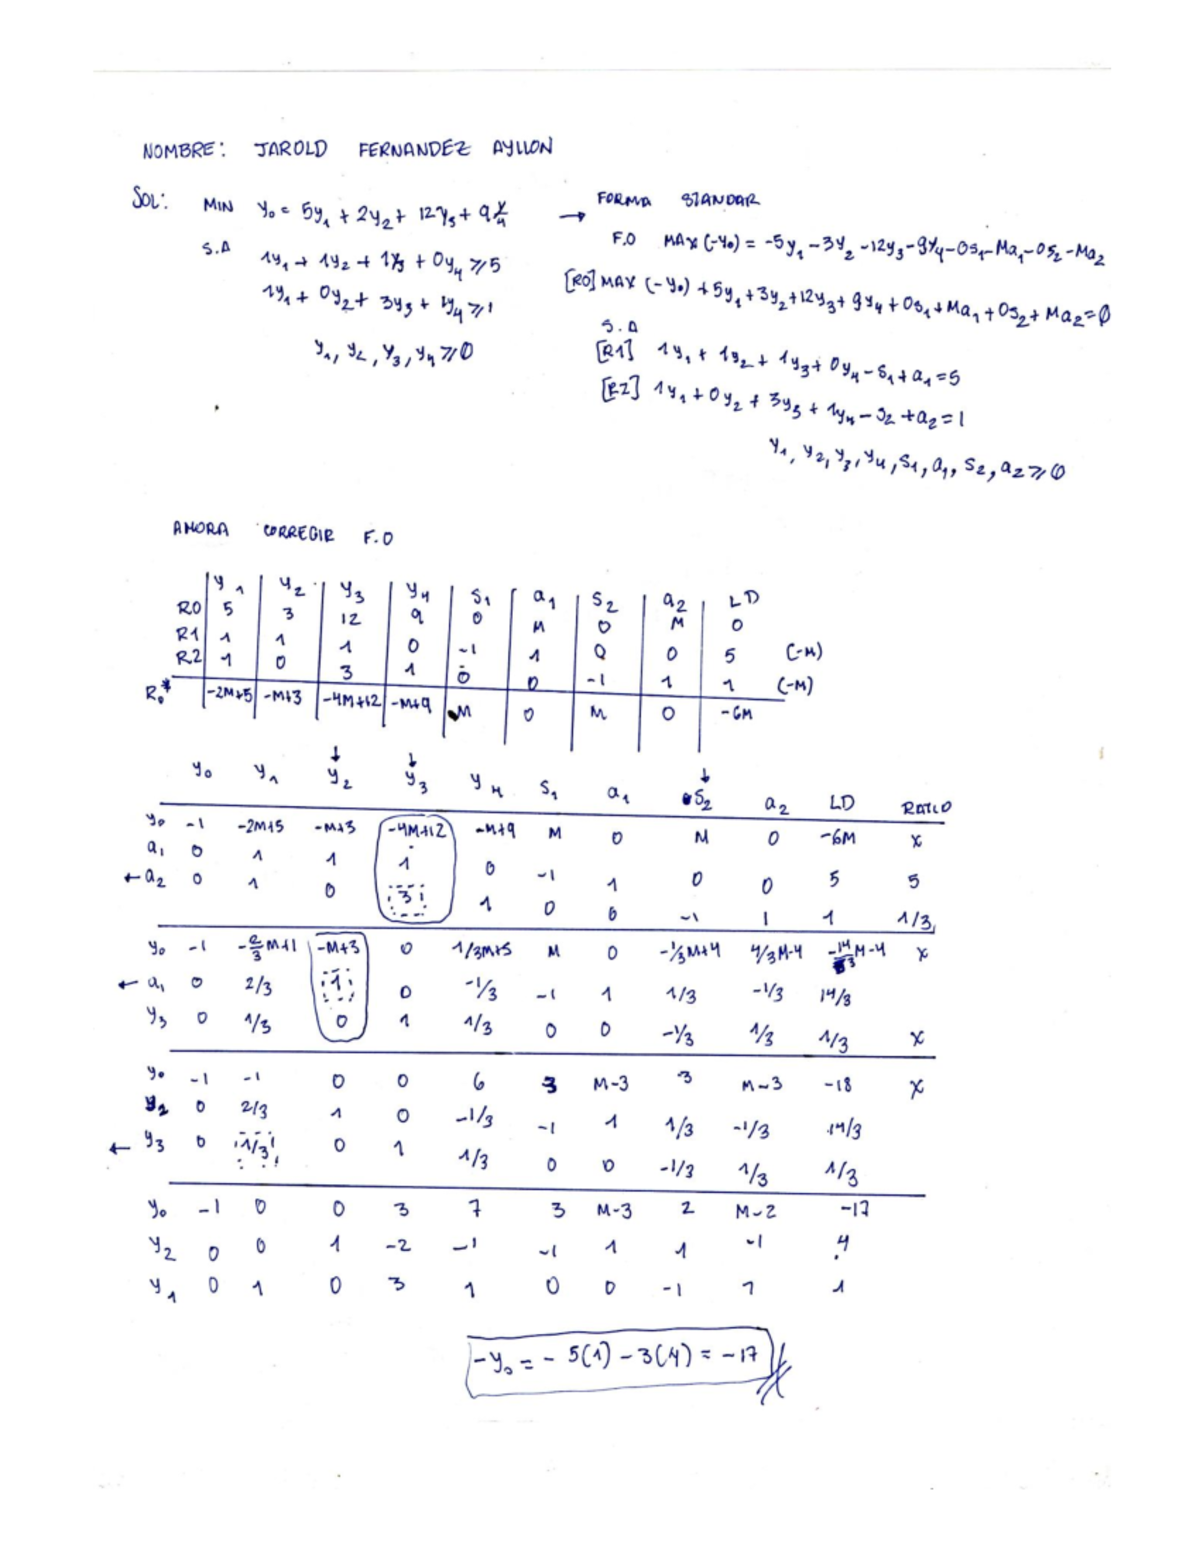 NOMBRE: JAROLD FERNANDEZ AYLLON
SOL: MIN y₀ = 5y₁ + 2y₂ + 12y₃ + 9y₄
S.A
1y₁ + 1y₂ + 1y₃ + 0y₄ ≥ 5
1y₁ + 0y₂ + 3y₃ + 1y₄ ≥ 1
y₁, y₂, y₃, y₄ ≥ 0
→ FORMA STANDAR
F.O MAX (-y₀) = -5y₁ - 3y₂ - 12y₃ - 9y₄ - 0s₁ - Ma₁ - 0s₂ - Ma₂
[R0] MAX (-y₀) + 5y₁ + 3y₂ + 12y₃ + 9y₄ + 0s₁ + Ma₁ + 0s₂ + Ma₂ = 0
S.A
[R1] 1y₁ + 1y₂ + 1y₃ + 0y₄ - s₁ + a₁ = 5
[R2] 1y₁ + 0y₂ + 3y₃ + 1y₄ - s₂ + a₂ = 1
y₁, y₂, y₃, y₄, s₁, a₁, s₂, a₂ ≥ 0
AHORA CORREGIR F.O
y₁ y₂ y₃ y₄ s₁ a₁ s₂ a₂ LD
R0 5 3 12 9 0 M 0 M 0
R1 1 1 1 0 -1 1 0 0 5 (-M)
R2 1 0 3 1 0 0 -1 1 1 (-M)
R₀* -2M+5 -M+3 -4M+12 -M+9 M 0 M 0 -6M
y₀ y₁ y₂ y₃ y₄ s₁ a₁ s₂ a₂ LD RATIO
y₀ -1 -2M+5 -M+3 -4M+12 -M+9 M 0 M 0 -6M x
a₁ 0 1 1 1 0 -1 1 0 0 5 5
← a₂ 0 1 0 3 1 0 0 -1 1 1 1/3
y₀ -1 -2/3M+1 -M+3 0 1/3M+5 M 0 -1/3M+4 4/3M-4 -14/3M-4 x
← a₁ 0 2/3 1 0 -1/3 -1 1 1/3 -1/3 14/3
y₃ 0 1/3 0 1 1/3 0 0 -1/3 1/3 1/3 x
y₀ -1 -1 0 0 6 3 M-3 3 M-3 -18 x
y₂ 0 2/3 1 0 -1/3 -1 1 1/3 -1/3 14/3
← y₃ 0 1/3 0 1 1/3 0 0 -1/3 1/3 1/3
y₀ -1 0 0 3 7 3 M-3 2 M-2 -17
y₂ 0 0 1 -2 -1 -1 1 1 -1 4
y₁ 0 1 0 3 1 0 0 -1 1 1
-y₀ = - 5(1) - 3(4) = -17